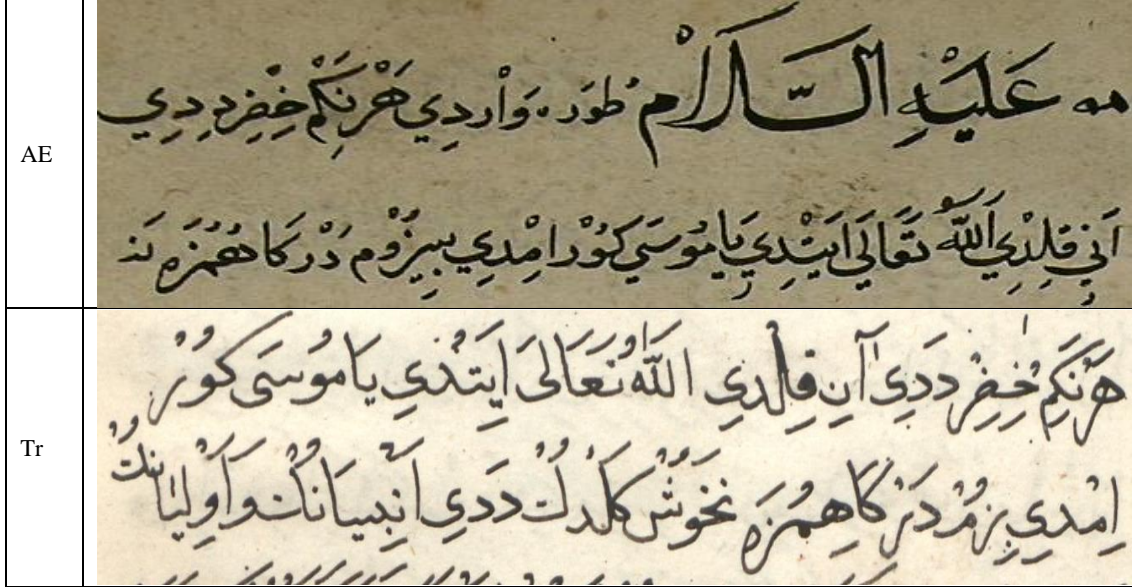 AE
مه عَلَيْهِ السَّلَامْ طُورَه وَاْردِي هَرْنِكَمْ خِضِرْ دِدِي
اَنِي قِلدِي اَللّٰهُ تَعَالَي ايَتْدِي يَا مُوسَي كَوُرْ امْدِي بِيزُوم دَرْكَا هُمُزَه نَه
Tr
هَرْنَكِمْ خِضِرْ دَدِي آنِ قِلْدِي اللّٰهُ تَعَالَى ايَتْدِي يَا مُوسَى كَوُرْ
اِمْدِي بِزُمْ دَرْكَاهِمُزَه نَخَوُشْ كَلْدِلْ دَدِي اَنْبِيَانُكْ وَاَوْلِيَانُكْ